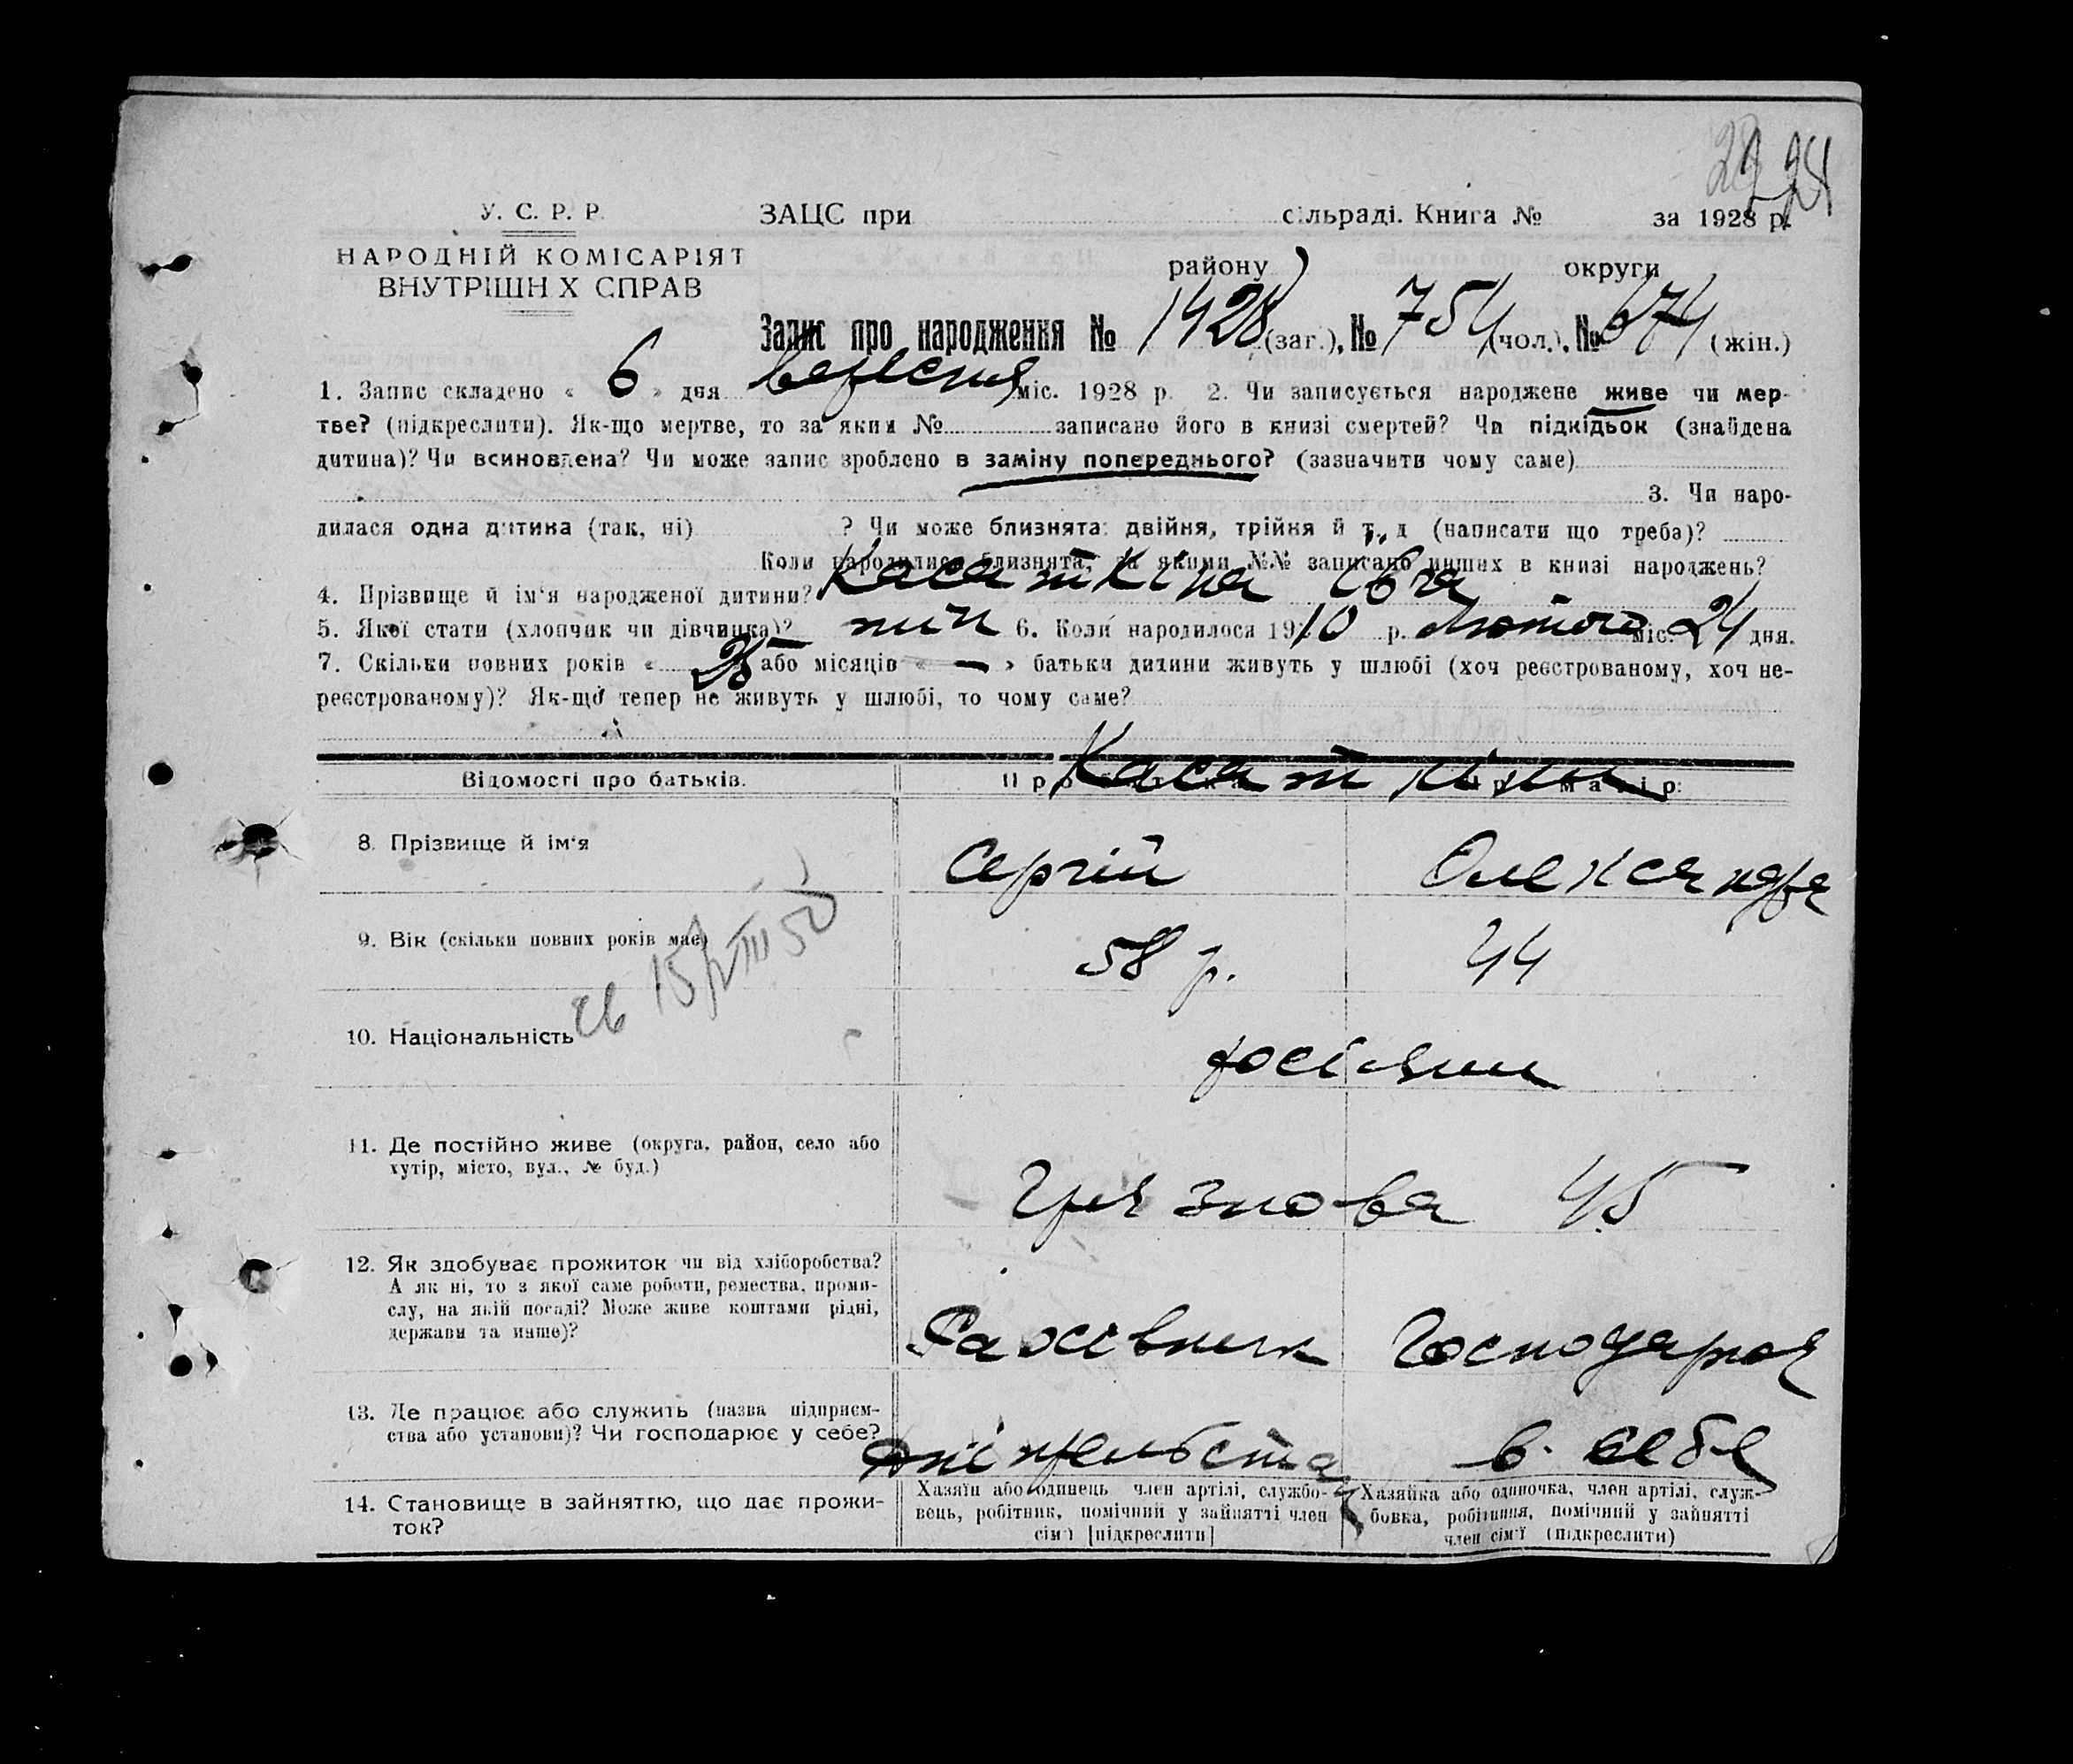 У. С. Р. Р.
НАРОДНІЙ КОМІСАРІЯТ
ВНУТРІШН Х СПРАВ
ЗАЦС при сільраді. Книга № за 1928 р.
району округи
Запис про народження № 1428 (заг.), № 754 (чол.), № 674 (жін.)
1. Запис складено « 6 » дня вересня міс. 1928 р. 2. Чи записується народжене живе чи мер-
тве? (підкреслити). Як-що мертве, то за яким № записано його в книзі смертей? Чи підкідьок (знайдена
дитина)? Чи всиновлена? Чи може запис зроблено в заміну попереднього? (зазначити чому саме)
3. Чи наро-
дилася одна дитина (так, ні) ? Чи може близнята: двійня, трійня й т. д (написати що треба)?
Коли народилися близнята, за якими №№ записано инших в книзі народжень?
4. Прізвище й ім'я народженої дитини? Касаткіна Євга
5. Якої стати (хлопчик чи дівчинка)? 6. Коли народилося 1910 р. Лютого міс. 24 дня.
7. Скільки повних років « » або місяців « — » батьки дитини живуть у шлюбі (хоч реєстрованому, хоч не-
реєстрованому)? Як-що тепер не живуть у шлюбі, то чому саме?
Касаткіни
Відомості про батьків. Про батька Про матір:
8. Прізвище й ім'я Сергій Олександра
9. Вік (скільки повних років має) 58 р. 44
10. Національність росіяни
11. Де постійно живе (округа, район, село або
хутір, місто, вул., № буд.)
Грязнова 45
12. Як здобуває прожиток чи від хліборобства?
А як ні, то з якої саме роботи, ремества, проми-
слу, на якій посаді? Може живе коштами рідні,
держави та инше)?
Господарка
13. Де працює або служить (назва підприєм-
ства або установи)? Чи господарює у себе?
в себе
14. Становище в зайняттю, що дає прожи-
ток?
Хазяїн або одинець член артілі, службо-
вець, робітник, помічний у зайнятті член
сім'ї [підкреслити]
Хазяйка або одиночка, член артілі, служ-
бовка, робітниця, помічний у зайнятті
член сім'ї (підкреслити)